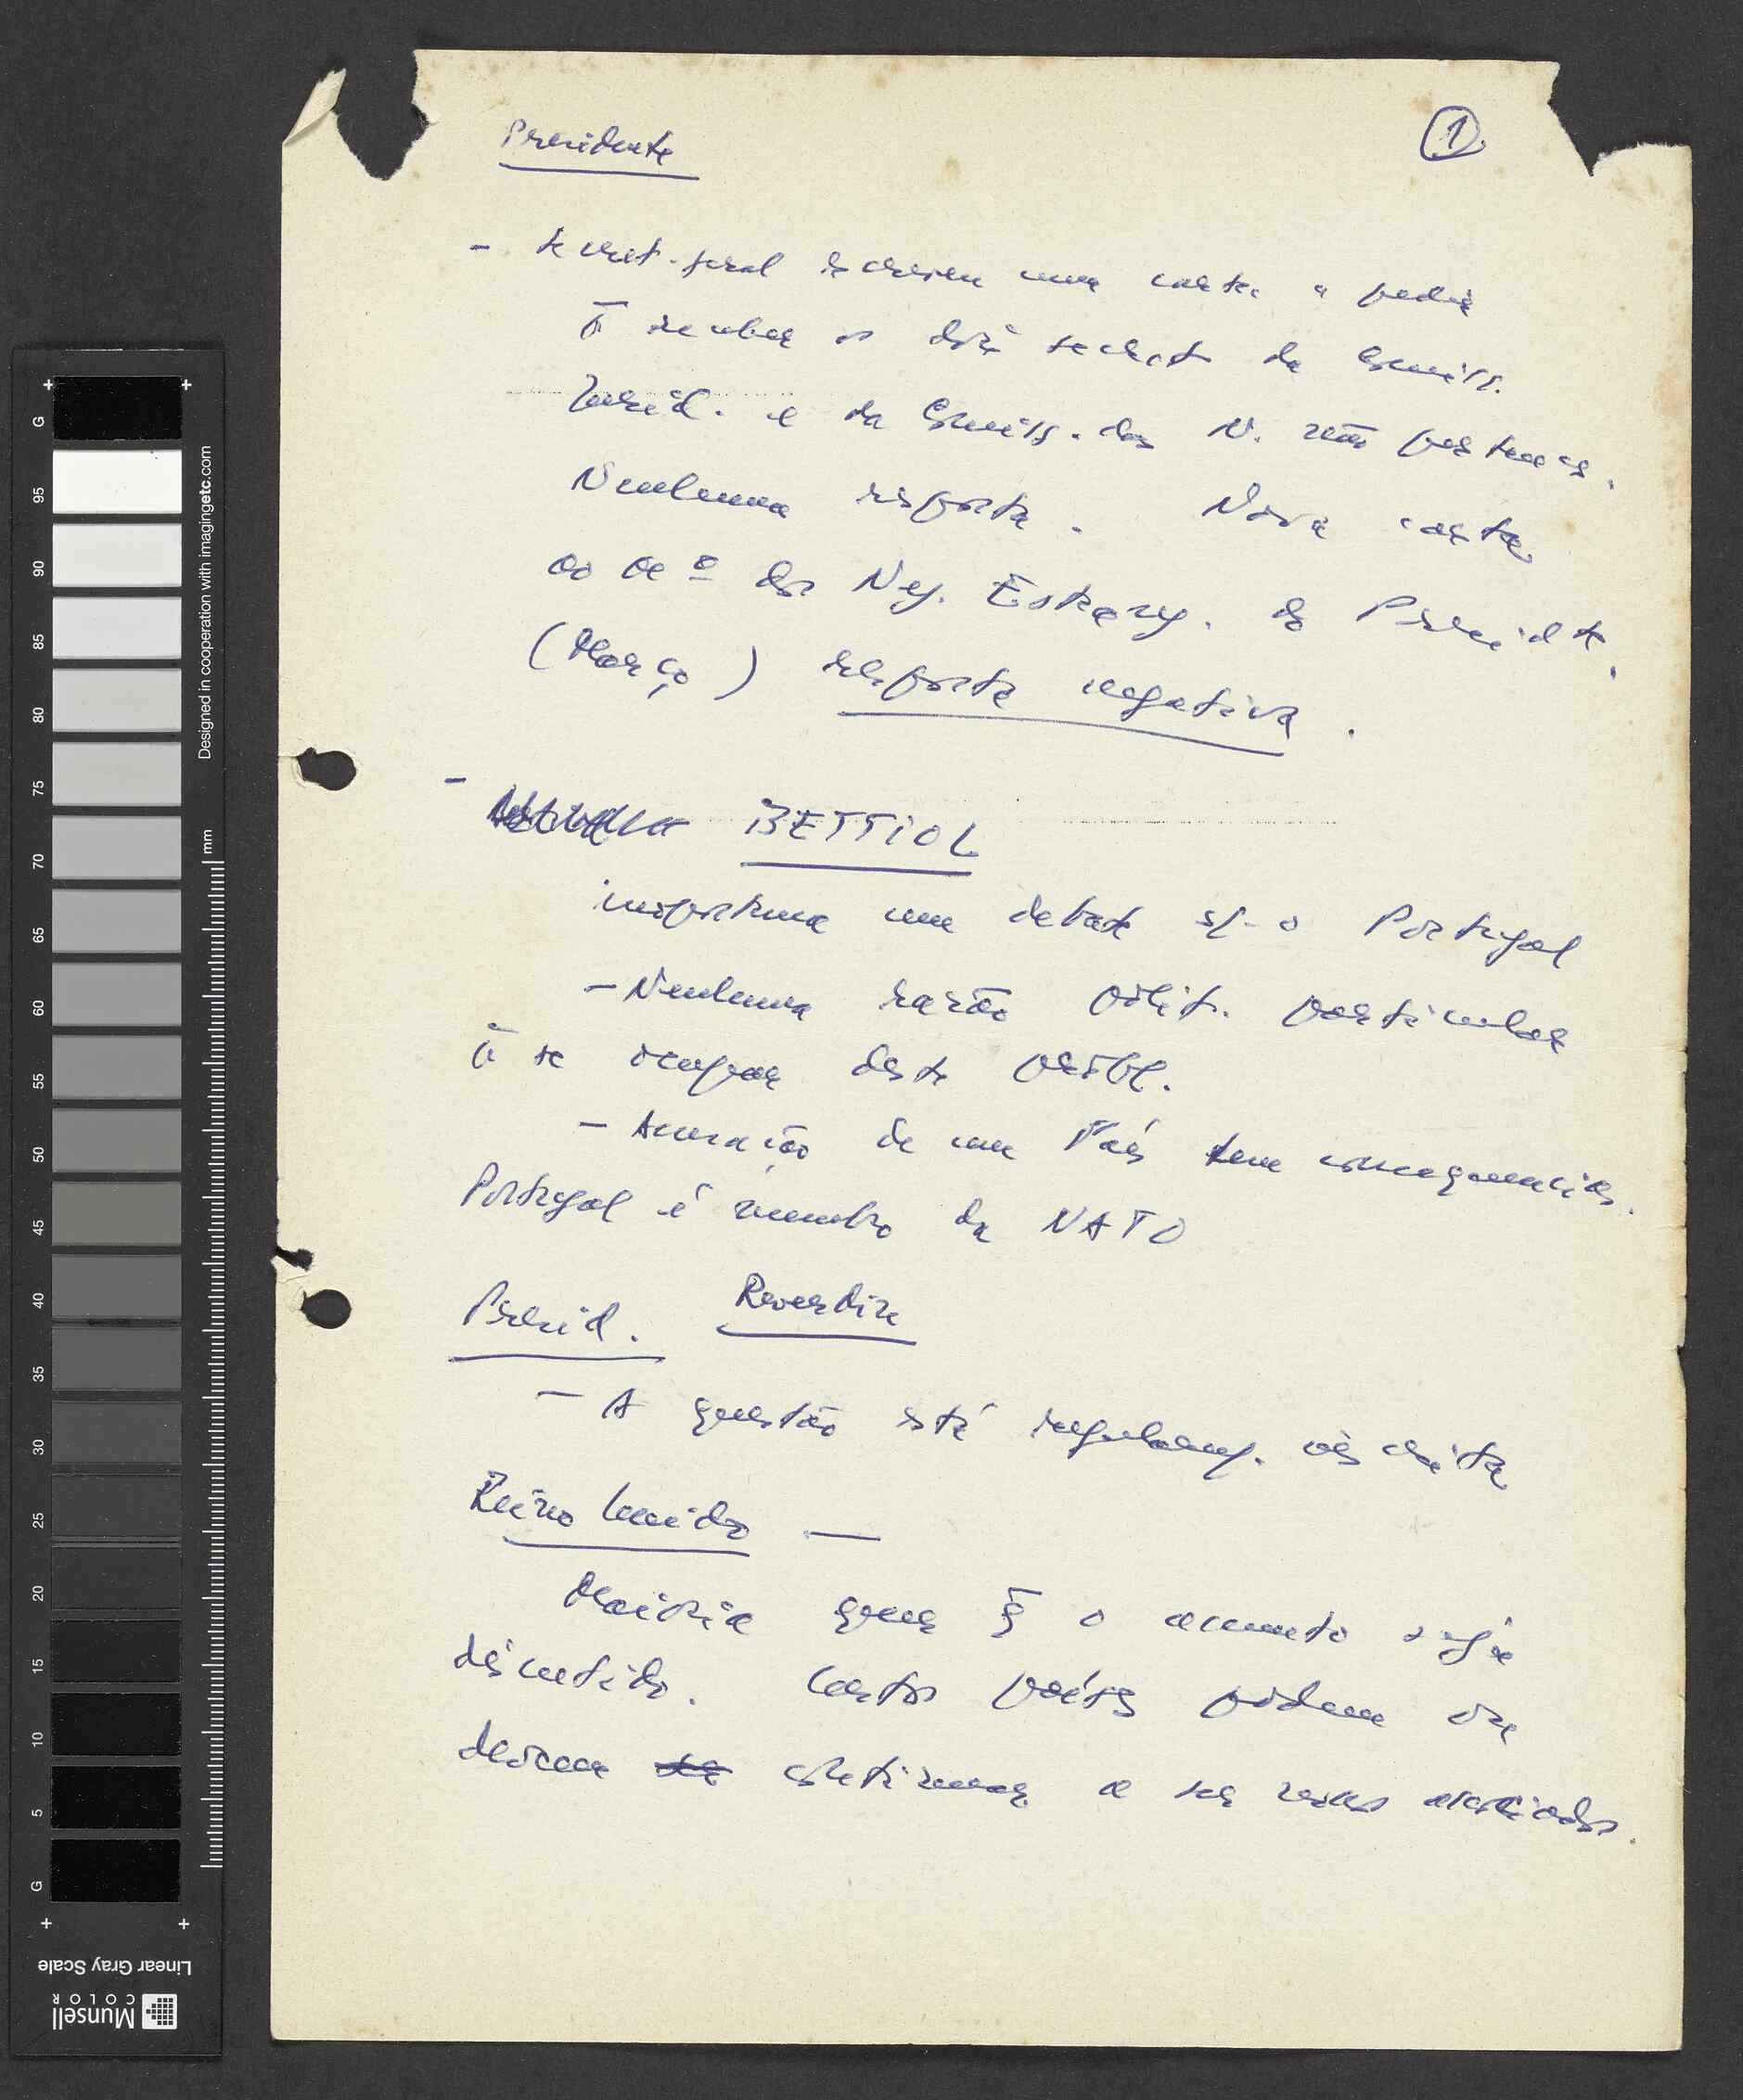 Presidente
1
- secret. geral escreveu uma carta a pedir
p̄ receber os dois secret. da Comiss.
Juríd. e da Comiss. das N. não pertences.
Nenhuma resposta. Nova carta
ao Mº dos Neg. Estrang. do Presidte.
(Março) resposta negativa.
- BETTIOL
inoportuno um debate s/ o Portugal
- Nenhuma razão polit. particular
p̄ se ocupar deste probl.
- Acusação de um País tem consequencias.
Portugal é membro da NATO
Presid. Reverdin
- A questão está regularm. inscrita
Reino Unido —
Maioria quer q̄ o assunto seja
discutido. Certos países podem ou
devem continuar a ser nossos associados.
G 95 90 85 80 75 70 65 60 55 50 45 40 35 30 25 20 15 10 5 G
mm
Designed in cooperation with imagingetc.com
Linear Gray Scale
Munsell
COLOR